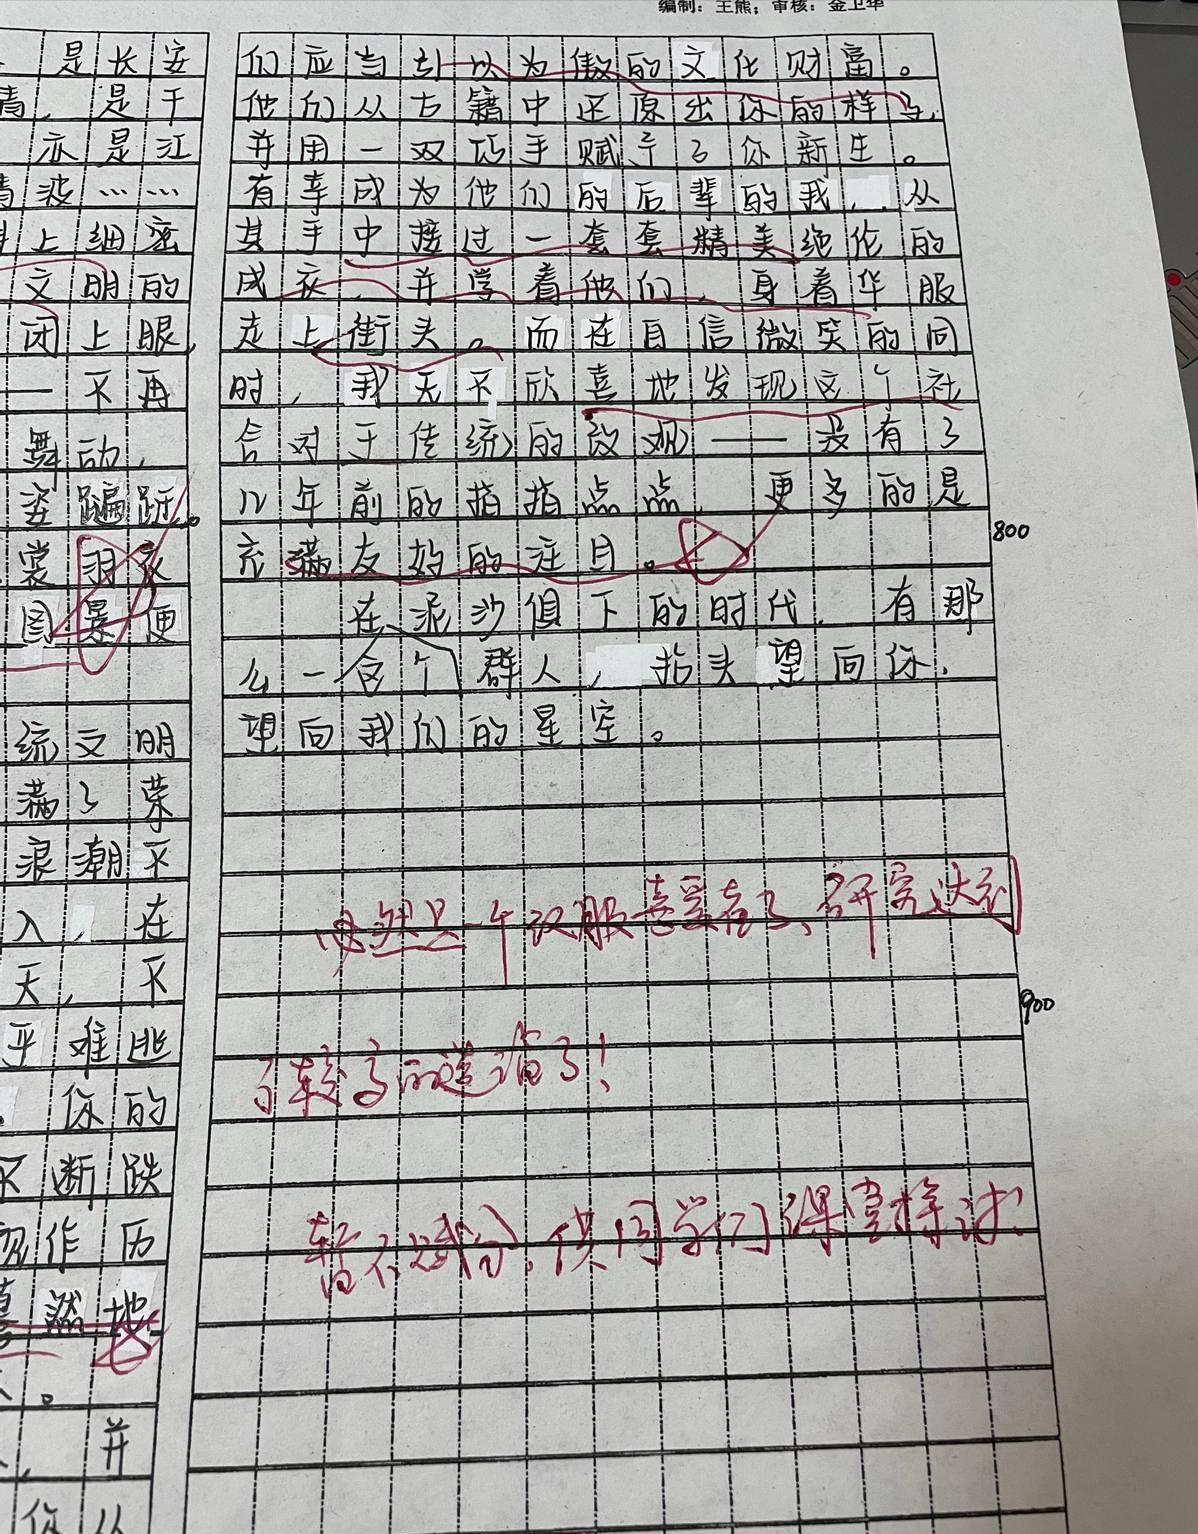 编制：王熊；审核：金卫华
是长安
情，是千
亦是江
清波……
上细密
文明的
闭上眼，
——不再
舞动，
姿蹁跹。
裳羽衣
图景便
统文明
满了荣
浪潮不
入，在
天，不
乎难逃
你的
不断跌
作历
蓦然地
。
，并
你从
们应当引以为傲的文化财富。
他们从古籍中还原出你的样子，
并用一双巧手赋予了你新生。
有幸成为他们的后辈的我，从
其手中接过一套套精美绝伦的
成衣，并学着他们，身着华服
走上街头。而在自信微笑的同
时，我无不欣喜地发现这个社
会对于传统的改观——没有了
几年前的指指点点，更多的是
充满友好的注目。
800
在泥沙俱下的时代，有那
么一个群人，抬头望向你，
望向我们的星空。
必然是一个汉服喜爱者了、研究达到
900
了较高的造诣了！
暂不减分，供同学们课堂探讨！